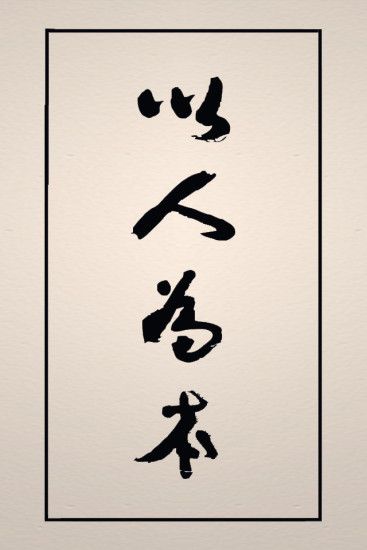 以人為本